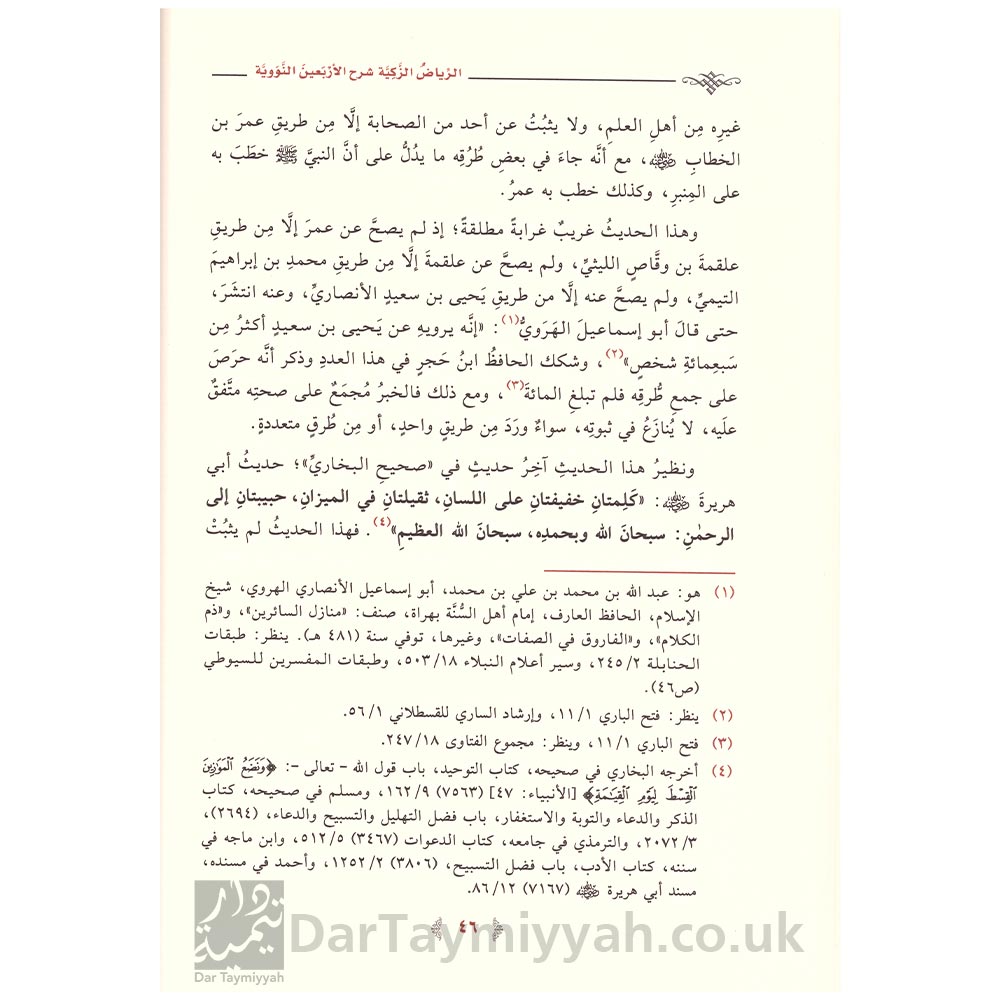 الرِّياضُ الزَّكِيَّة شرح الأَرْبَعينَ النَّوَوِيَّة
غيرِه مِن أهلِ العلمِ، ولا يثبُتُ عن أحد من الصحابة إلَّا مِن طريقِ عمرَ بن
الخطابِ رضي الله عنه، مع أنَّه جاءَ في بعضِ طُرُقِه ما يدُلُّ على أنَّ النبيَّ ﷺ خطَبَ به
على المِنبرِ، وكذلك خطب به عمرُ.
وهذا الحديثُ غريبٌ غرابةً مطلقةً؛ إذ لم يصحَّ عن عمرَ إلَّا مِن طريقِ
علقمةَ بن وقَّاصٍ الليثيِّ، ولم يصحَّ عن علقمةَ إلَّا مِن طريقِ محمدِ بن إبراهيمَ
التيميِّ، ولم يصحَّ عنه إلَّا من طريقِ يَحيى بن سعيدٍ الأنصاريِّ، وعنه انتشَرَ،
حتى قالَ أبو إسماعيلَ الهَرَويُّ(١): «إنَّه يرويهِ عن يَحيى بن سعيدٍ أكثرُ مِن
سَبعِمائةِ شخصٍ»(٢)، وشكك الحافظُ ابنُ حَجرٍ في هذا العددِ وذكر أنَّه حرَصَ
على جمعِ طُرقِه فلم تبلغِ المائةَ(٣)، ومع ذلك فالخبرُ مُجمَعٌ على صحتِه متَّفقٌ
علَيه، لا يُنازَعُ في ثبوتِه، سواءٌ ورَدَ مِن طريقٍ واحدٍ، أو مِن طُرقٍ متعددةٍ.
ونظيرُ هذا الحديثِ آخِرُ حديثٍ في «صحيحِ البخاريِّ»؛ حديثُ أبي
هريرةَ رضي الله عنه: «كَلِمتانِ خفيفتانِ على اللسانِ، ثقيلتانِ في الميزانِ، حبيبتانِ إلى
الرحمٰنِ: سبحانَ الله وبحمدِه، سبحانَ الله العظيمِ»(٤). فهذا الحديثُ لم يثبُتْ
(١) هو: عبد الله بن محمد بن علي بن محمد، أبو إسماعيل الأنصاري الهروي، شيخ
الإسلام، الحافظ العارف، إمام أهل السُّنَّة بهراة، صنف: «منازل السائرين»، و«ذم
الكلام»، و«الفاروق في الصفات»، وغيرها، توفي سنة (٤٨١ هـ). ينظر: طبقات
الحنابلة ٢/ ٢٤٥، وسير أعلام النبلاء ١٨/ ٥٠٣، وطبقات المفسرين للسيوطي
(ص٤٦).
(٢) ينظر: فتح الباري ١/ ١١، وإرشاد الساري للقسطلاني ١/ ٥٦.
(٣) فتح الباري ١/ ١١، وينظر: مجموع الفتاوى ١٨/ ٢٤٧.
(٤) أخرجه البخاري في صحيحه، كتاب التوحيد، باب قول الله – تعالى –: ﴿وَنَضَعُ ٱلْمَوَٰزِينَ
ٱلْقِسْطَ لِيَوْمِ ٱلْقِيَٰمَةِ﴾ [الأنبياء: ٤٧] (٧٥٦٣) ٩/ ١٦٢، ومسلم في صحيحه، كتاب
الذكر والدعاء والتوبة والاستغفار، باب فضل التهليل والتسبيح والدعاء، (٢٦٩٤)،
٣/ ٢٠٧٢، والترمذي في جامعه، كتاب الدعوات (٣٤٦٧) ٥/ ٥١٢، وابن ماجه في
سننه، كتاب الأدب، باب فضل التسبيح، (٣٨٠٦) ٢/ ١٢٥٢، وأحمد في مسنده،
مسند أبي هريرة رضي الله عنه (٧١٦٧) ١٢/ ٨٦.
٤٦
دار تيمية
Dar Taymiyyah
DarTaymiyyah.co.uk